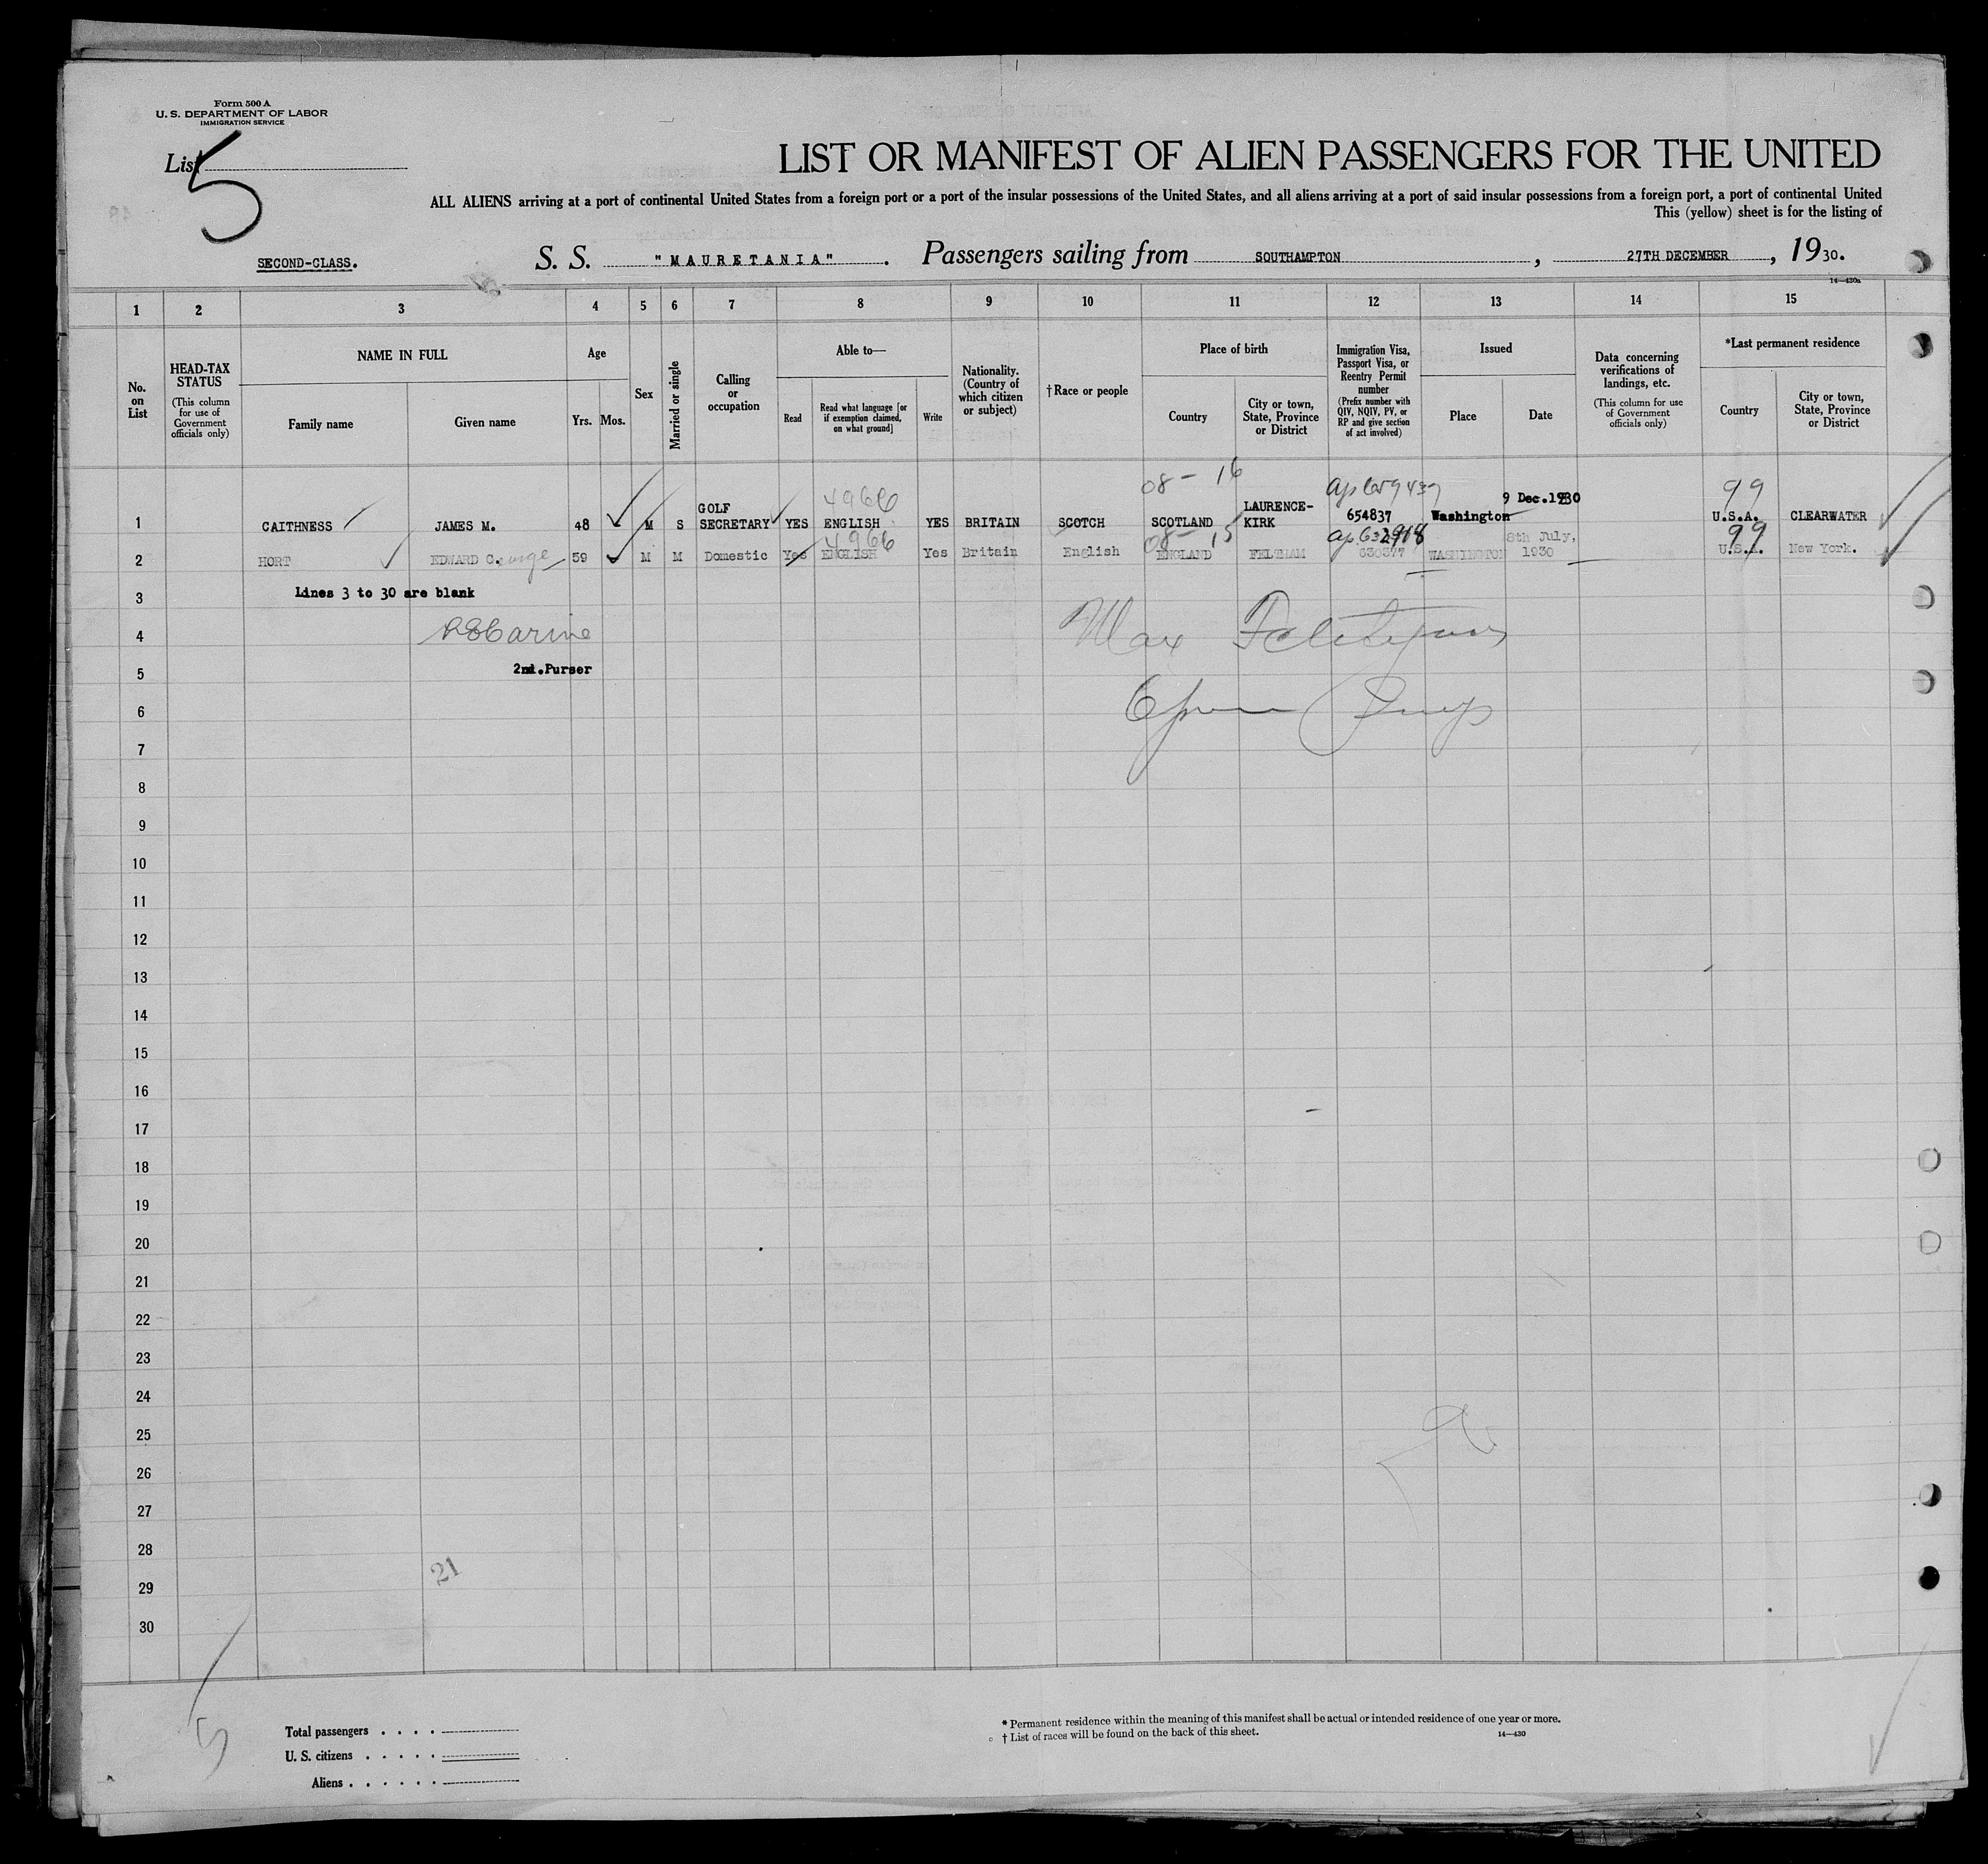 Form 500 A
U. S. DEPARTMENT OF LABOR
IMMIGRATION SERVICE
List 5
LIST OR MANIFEST OF ALIEN PASSENGERS FOR THE UNITED
ALL ALIENS arriving at a port of continental United States from a foreign port or a port of the insular possessions of the United States, and all aliens arriving at a port of said insular possessions from a foreign port, a port of continental United
This (yellow) sheet is for the listing of
SECOND-CLASS. S. S. "MAURETANIA". Passengers sailing from SOUTHAMPTON, 27TH DECEMBER, 1930.
14—430a
1 2 3 4 5 6 7 8 9 10 11 12 13 14 15
No. on List
HEAD-TAX STATUS
(This column for use of Government officials only)
NAME IN FULL
Family name
Given name
Age
Yrs. Mos.
Sex
Married or single
Calling or occupation
Able to—
Read
Read what language [or if exemption claimed, on what ground]
Write
Nationality. (Country of which citizen or subject)
†Race or people
Place of birth
Country
City or town, State, Province or District
Immigration Visa, Passport Visa, or Reentry Permit number
(Prefix number with QIV, NQIV, PV, or RP and give section of act involved)
Issued
Place
Date
Data concerning verifications of landings, etc.
(This column for use of Government officials only)
*Last permanent residence
Country
City or town, State, Province or District
4966 08- 16 99
1 CAITHNESS JAMES M. 48 M S GOLF SECRETARY YES ENGLISH YES BRITAIN SCOTCH SCOTLAND LAURENCE-KIRK 654837 Washington 9 Dec.1930 U.S.A. CLEARWATER
4966 08- 15 99
2 HORT EDWARD George 59 M M Domestic Yes ENGLISH Yes Britain English ENGLAND FELTHAM 630377 WASHINGTON 8th July, 1930 U.S.A. New York.
3 Lines 3 to 30 are blank
4
5 2nd.Purser
6
7
8
9
10
11
12
13
14
15
16
17
18
19
20
21
22
23
24
25
26
27
28
21
29
30
5
Total passengers . . . .
U. S. citizens . . . . .
Aliens . . . . . .
* Permanent residence within the meaning of this manifest shall be actual or intended residence of one year or more.
† List of races will be found on the back of this sheet.
14—430